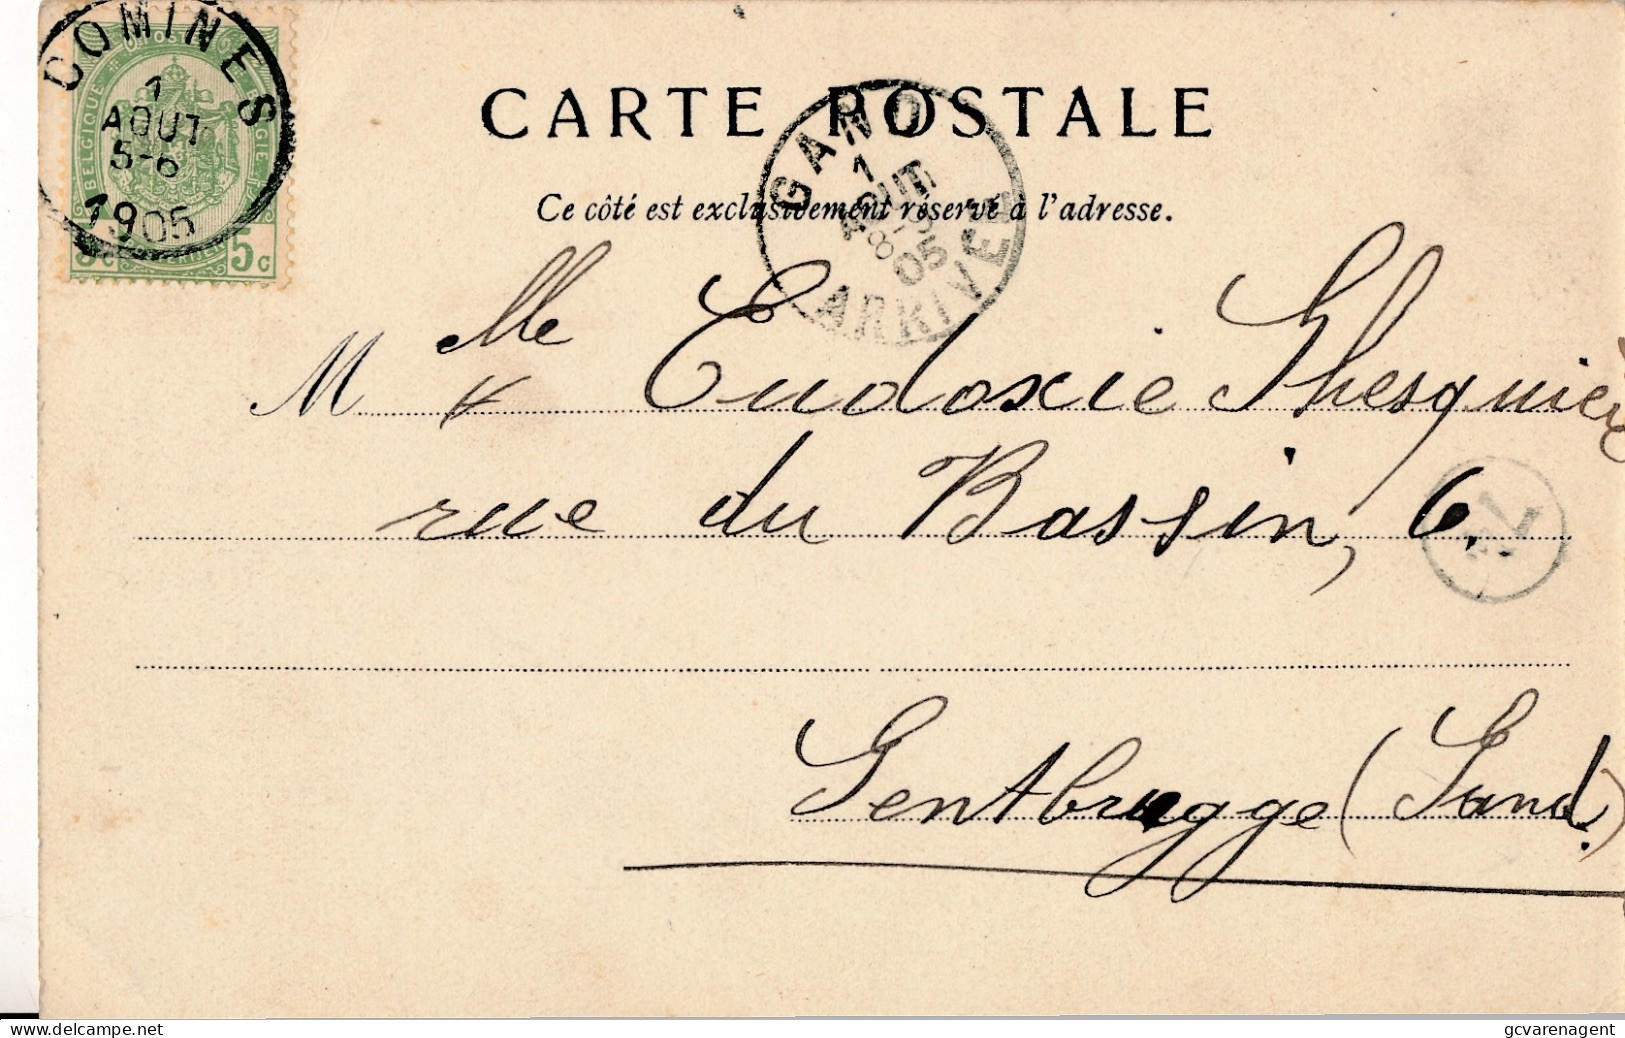 COMINES
1
AOUT
5-6
1905
BELGIQUE
5c
CARTE POSTALE
GAND
1
AOUT
8-9
05
ARRIVÉE
Ce côté est exclusivement réservé à l'adresse.
M Mlle Eudoxie Ghesquière
rue du Bassin, 6.
Gentbrugge (Gand.)
delcampe.net
gcvarenagent